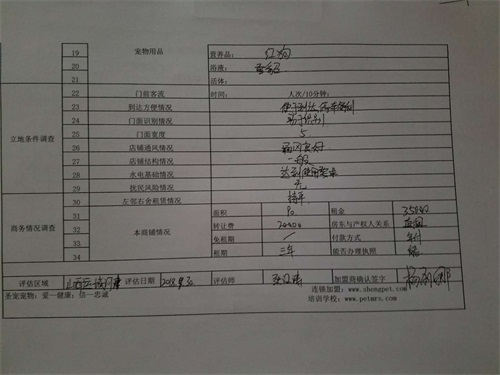 19 宠物用品 营养品: 红狗
20 浴液:
21 活体:
22 门前客流 时间: 人次/10分钟:
23 到达方便情况
24 门面识别情况 易于识别
25 门面宽度 5
立地条件调查
26 店铺通风情况 通风良好
27 店铺结构情况 一般
28 水电基础情况 达到使用要求
29 扰民风险情况 无
30 左邻右舍租赁情况 持平
31 面积 90 租金 35000
32 转让费 20000 房东与产权人关系
商务情况调查 本商铺情况
33 免租期 / 付款方式 年付
34 租期 三年 能否办理执照 能
评估区域 评估日期 评估师 加盟商确认签字
圣宠宠物:爱—健康;信—忠诚 连锁加盟:www.shengpet.com
培训学校:www.petmrs.com